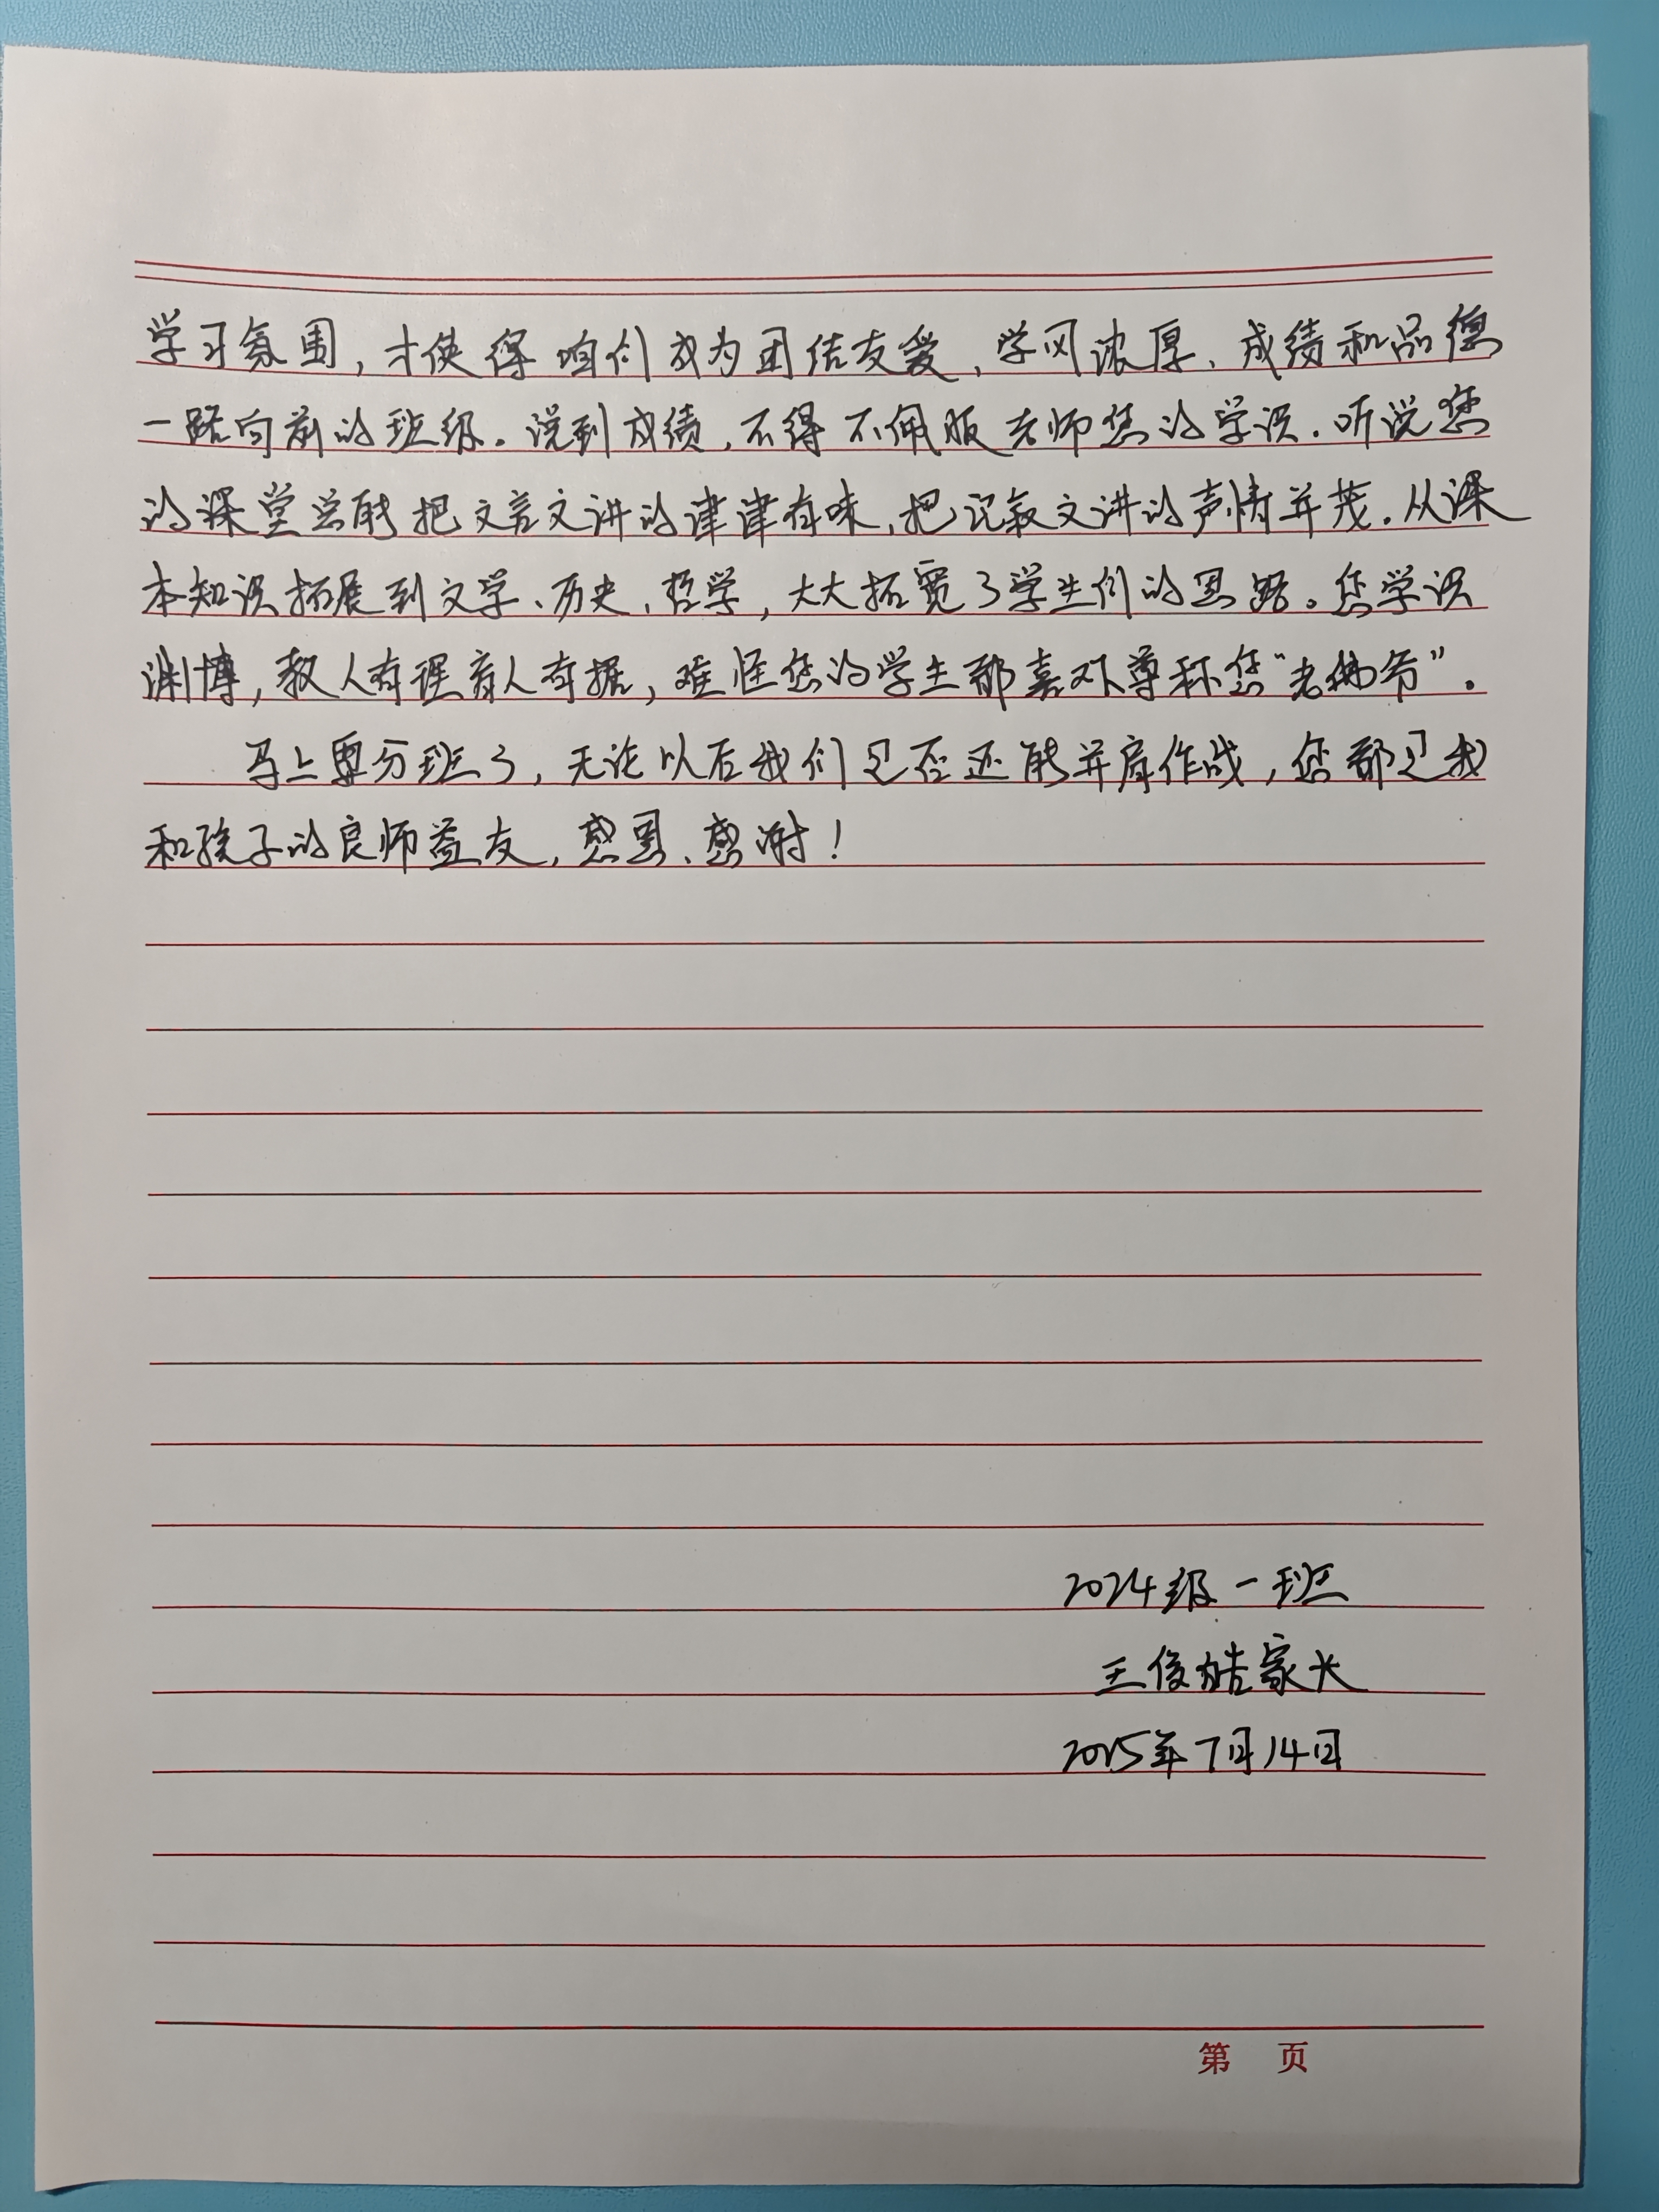 学习氛围,才使得咱们成为团结友爱,学风浓厚、成绩和品德
一路向前的班级。说到成绩,不得不佩服老师您的学识。听说您
的课堂总能把文言文讲的津津有味,把记叙文讲的声情并茂。从课
本知识拓展到文学、历史、哲学,大大拓宽了学生们的思路。您学识
渊博,教人有理育人有据,难怪您的学生都喜欢尊称您“老佛爷”。
马上要分班了,无论以后我们是否还能并肩作战,您都是我
和孩子的良师益友,感恩、感谢!
2024级一班
王俊皓家长
2025年7月14日
第 页